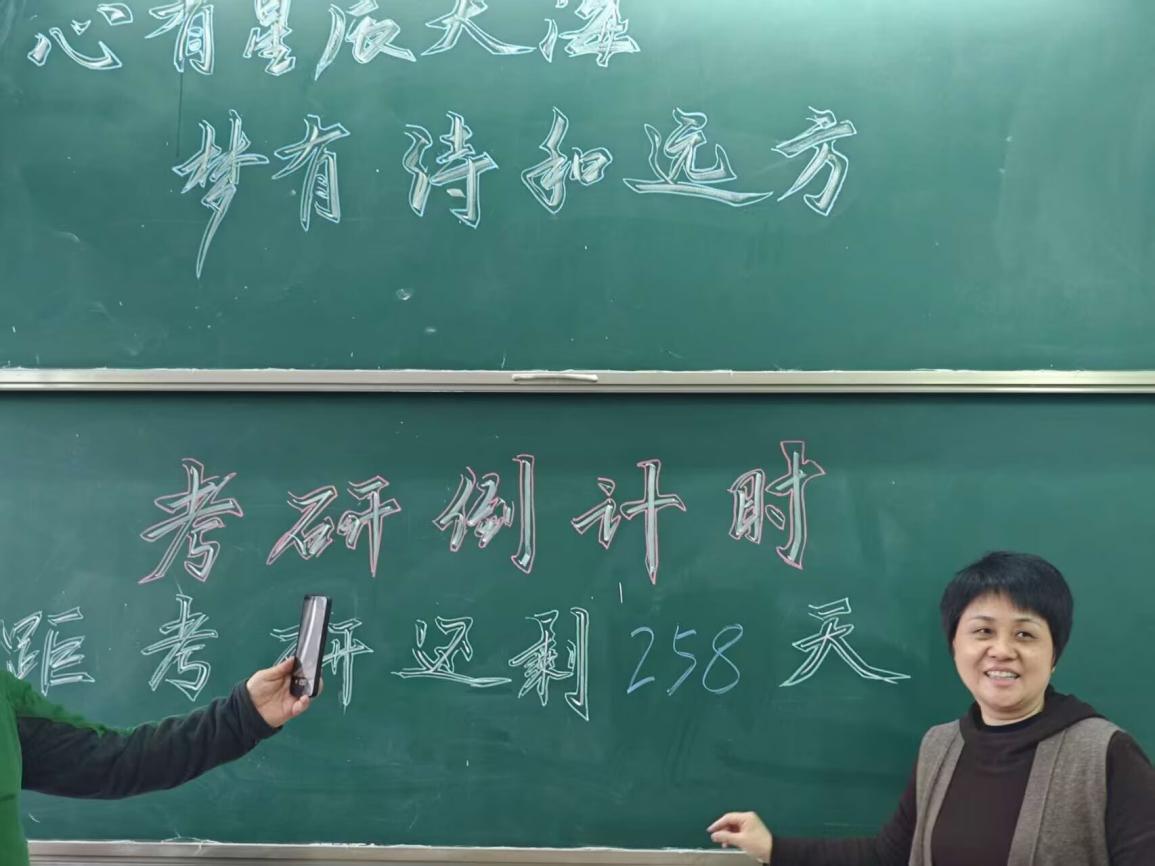 心有星辰大海
梦有诗和远方
考研倒计时
距考研还剩258天